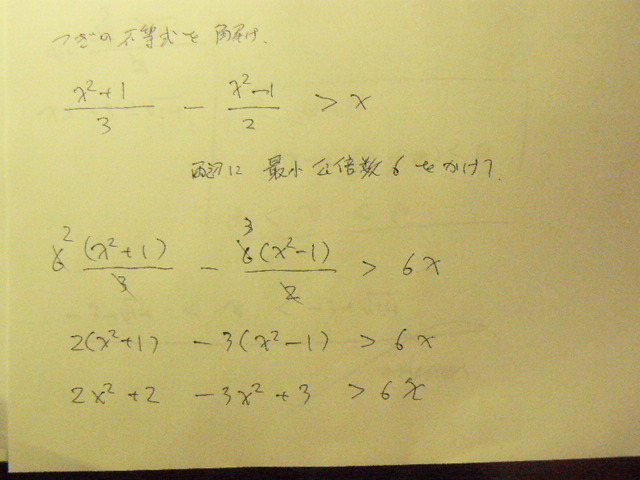 つぎの不等式を解け.
x²+1/3 - x²-1/2 > x
両辺に最小公倍数6をかけて
6 2 (x²+1)/3 - 6 3 (x²-1)/2 > 6x
2(x²+1) - 3(x²-1) > 6x
2x²+2 - 3x²+3 > 6x